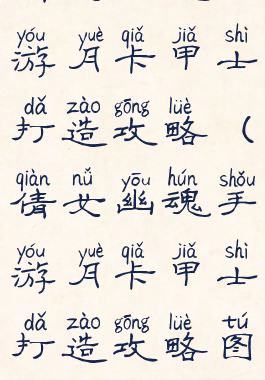 yóu yuè qiǎ jiǎ shì
游月卡甲士
dǎ zào gōng lüè
打造攻略（
qiàn nǚ yōu hún shǒu
倩女幽魂手
yóu yuè qiǎ jiǎ shì
游月卡甲士
dǎ zào gōng lüè tú
打造攻略图